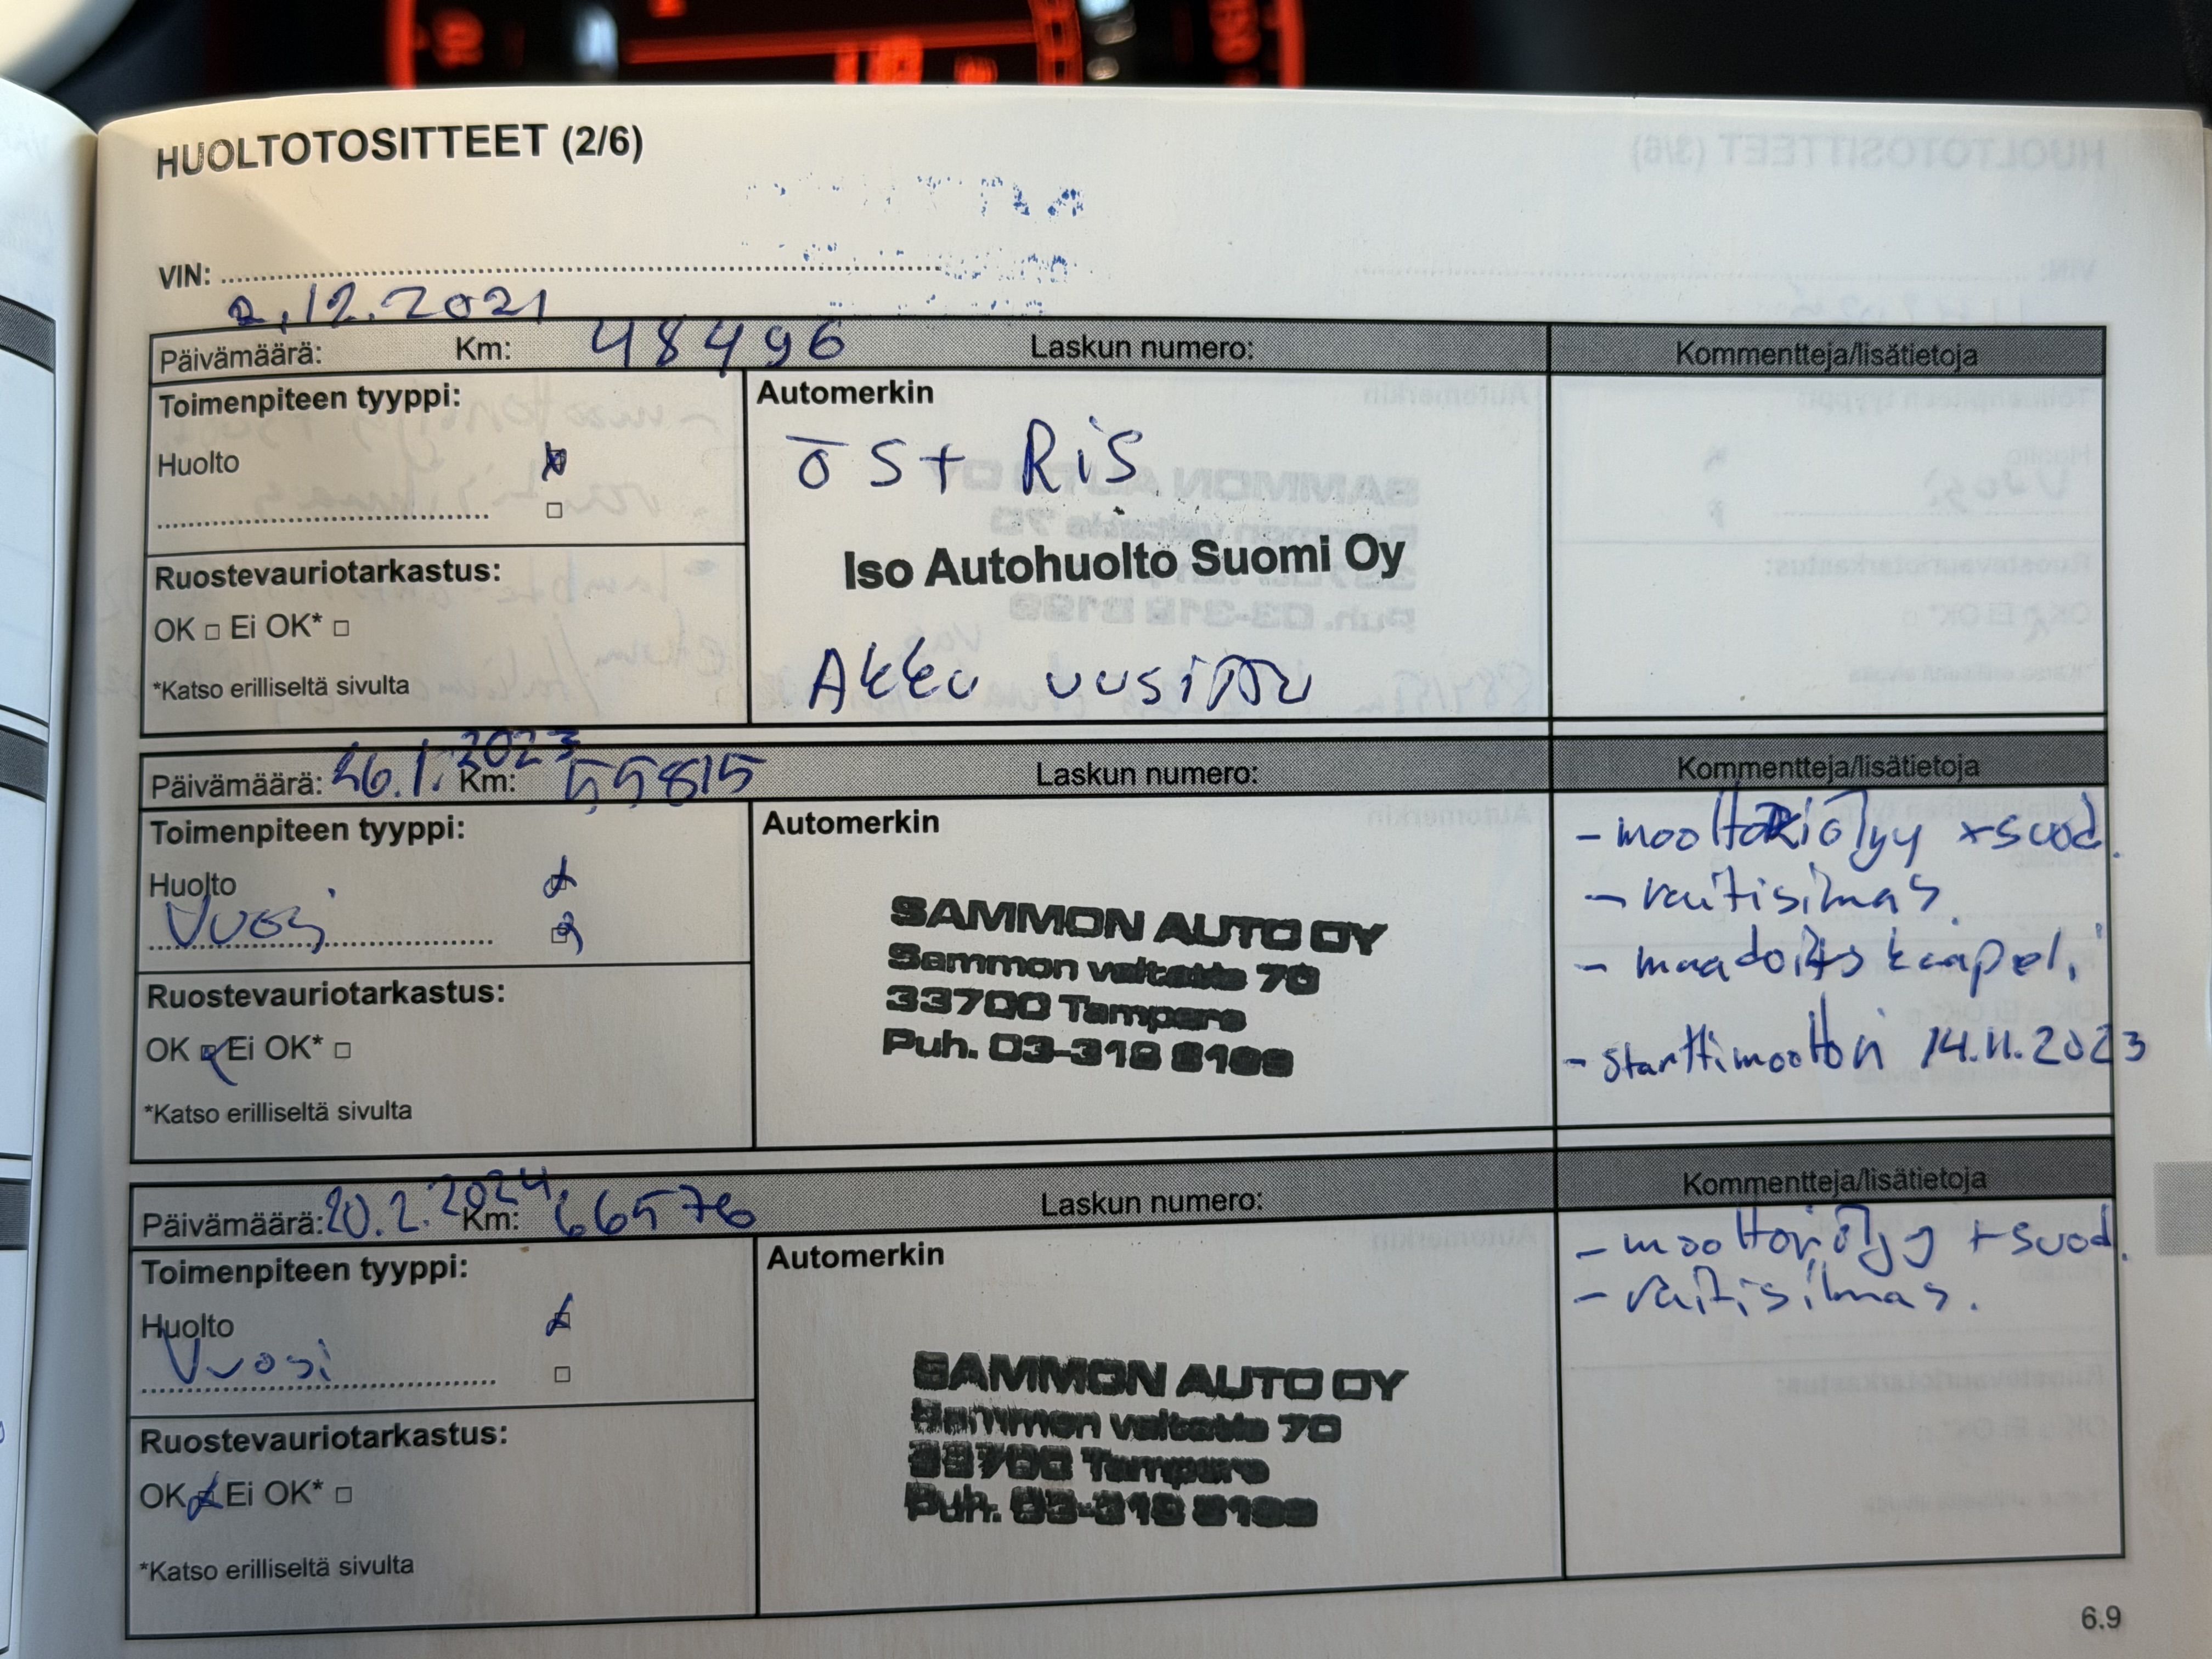 HUOLTOTOSITTEET (2/6)
VIN:
2.12.2021
Päivämäärä: Km: 48496 Laskun numero: Kommentteja/lisätietoja
Toimenpiteen tyyppi:
Huolto
Automerkin
ös+ RiS
Iso Autohuolto Suomi Oy
Akku uusittu
Ruostevauriotarkastus:
OK □ Ei OK* □
*Katso erilliseltä sivulta
Päivämäärä: 26.1.2023 Km: 55815 Laskun numero: Kommentteja/lisätietoja
Toimenpiteen tyyppi:
Huolto
Vuosi
Automerkin
SAMMON AUTO OY
Sammon valtatie 70
33700 Tampere
Puh. 03-318 8199
- moottoriöljy +suod.
- raitisilmas.
- maadoituskaapeli
- starttimoottori 14.11.2023
Ruostevauriotarkastus:
OK Ei OK* □
*Katso erilliseltä sivulta
Päivämäärä: 20.2.2024 Km: 66576 Laskun numero: Kommentteja/lisätietoja
Toimenpiteen tyyppi:
Huolto
Vuosi
Automerkin
SAMMON AUTO OY
Sammon valtatie 70
33700 Tampere
Puh. 03-318 8199
- moottoriöljy +suod.
- raitisilmas.
Ruostevauriotarkastus:
OK Ei OK* □
*Katso erilliseltä sivulta
6.9